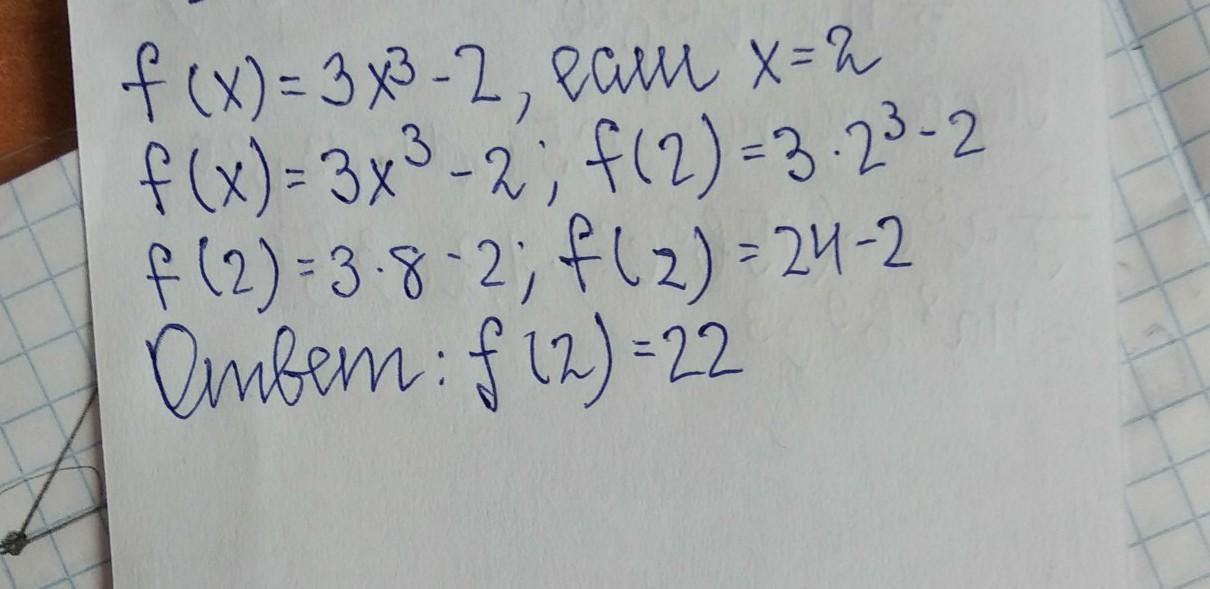 f(x)=3x³-2, если x=2
f(x)=3x³-2; f(2)=3·2³-2
f(2)=3·8-2; f(2)=24-2
Ответ: f(2)=22